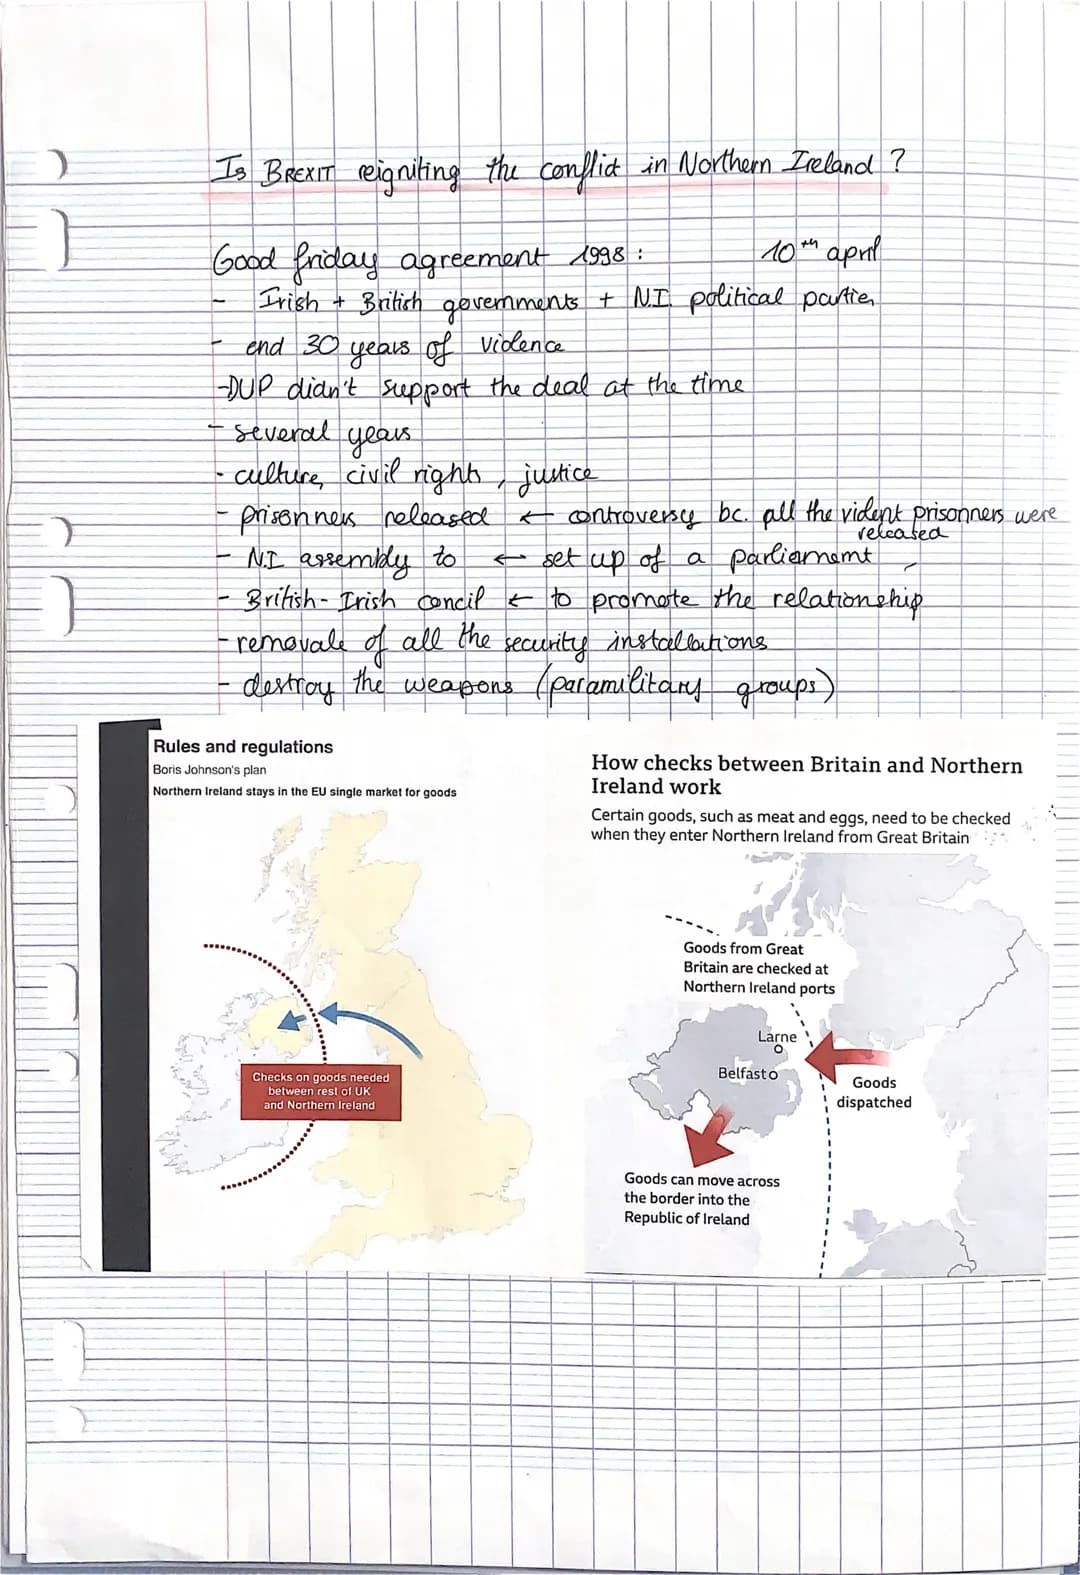 Is BREXIT reigniting the conflict in Northern Ireland ?
Good friday agreement 1998 : 10th april
- Irish + British governments + N.I. political parties
- end 30 years of violence
-DUP didn't support the deal at the time
- several years
- culture, civil rights, justice
- prisonners released ← controversy bc. all the violent prisonners were
released
- N.I assembly to ← set up of a parliamemt
- British-Irish concil ← to promote the relationship
- removale of all the security installations
- destroy the weapons (paramilitary groups)
Rules and regulations
Boris Johnson's plan
Northern Ireland stays in the EU single market for goods
Checks on goods needed
between rest of UK
and Northern Ireland
How checks between Britain and Northern
Ireland work
Certain goods, such as meat and eggs, need to be checked
when they enter Northern Ireland from Great Britain
Goods from Great
Britain are checked at
Northern Ireland ports
Larne
Belfast
Goods
dispatched
Goods can move across
the border into the
Republic of Ireland